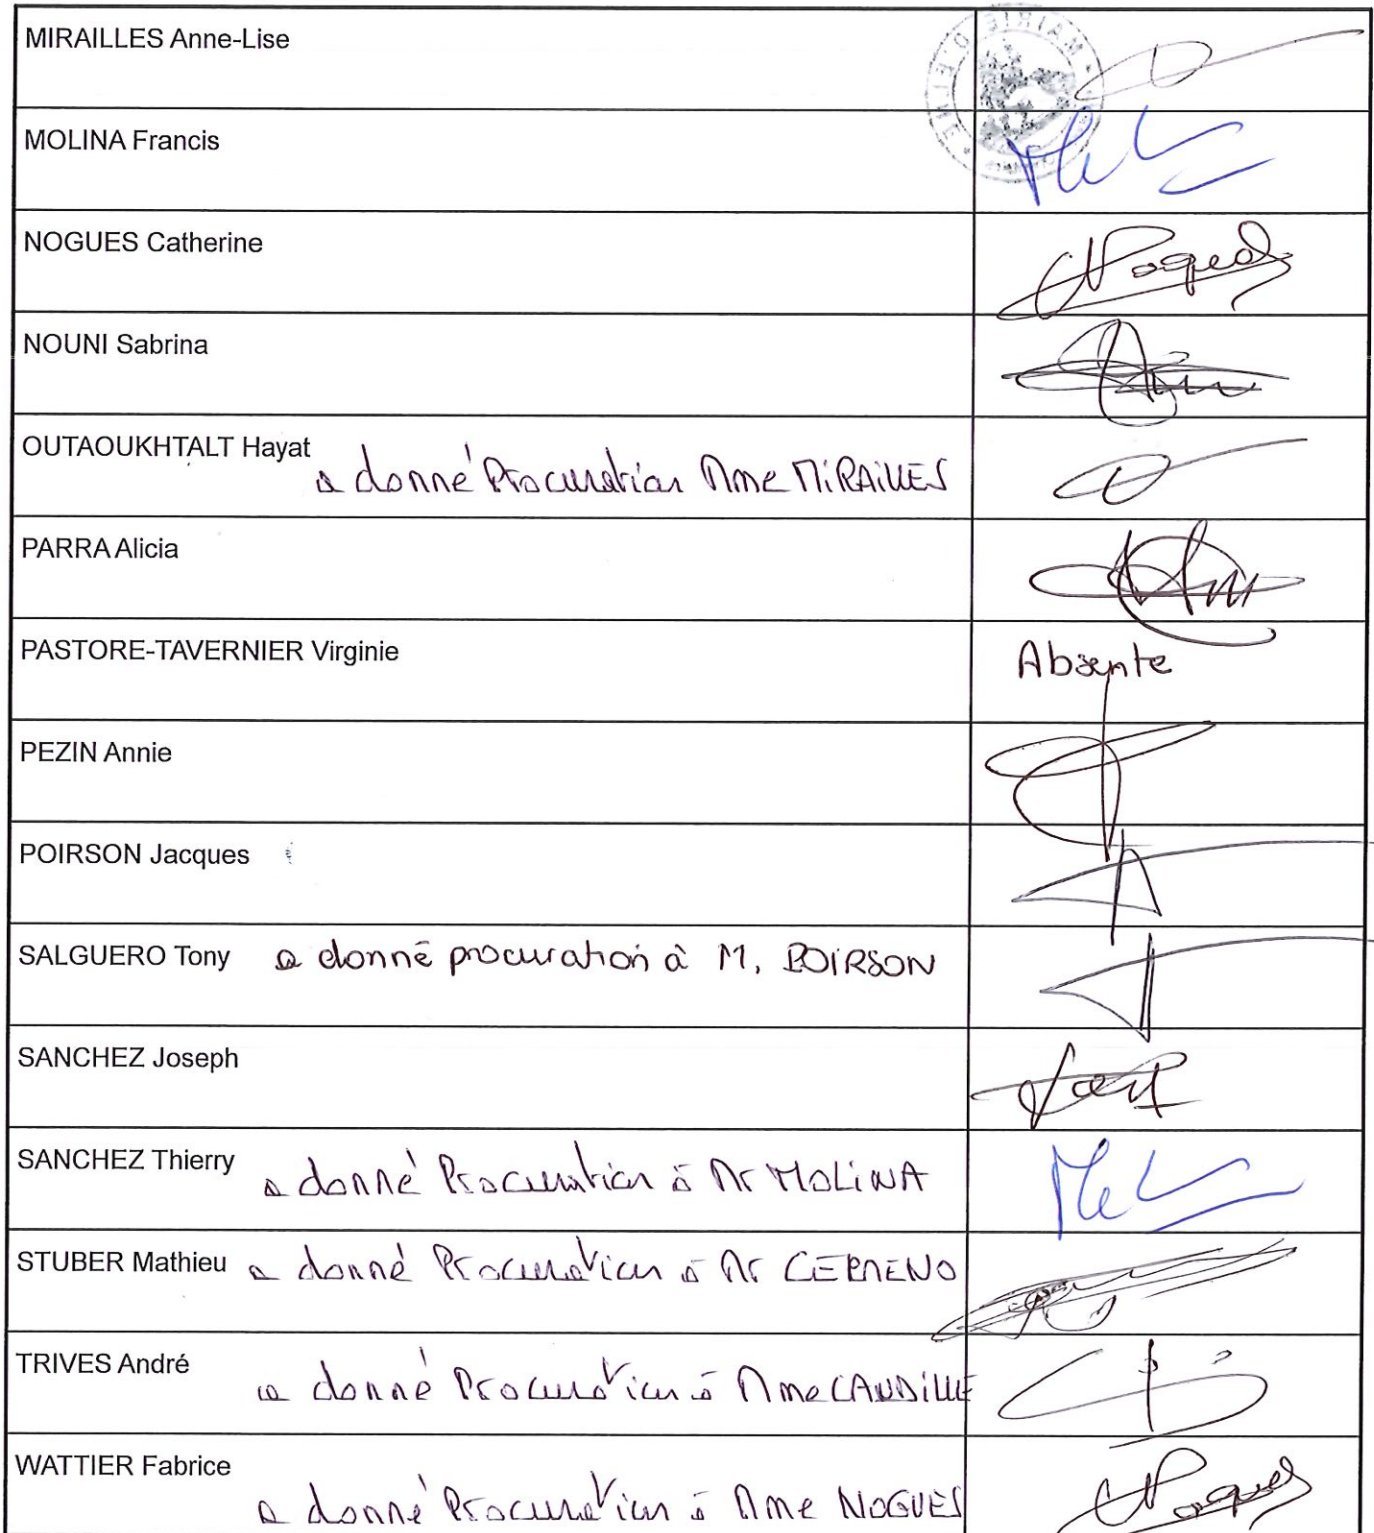 MIRAILLES Anne-Lise
MOLINA Francis
NOGUES Catherine
Nogues
NOUNI Sabrina
OUTAOUKHTALT Hayat a donné Procuration Mme MIRAILLES
PARRA Alicia
PASTORE-TAVERNIER Virginie Absente
PEZIN Annie
POIRSON Jacques
SALGUERO Tony a donné procuration à M. POIRSON
SANCHEZ Joseph
SANCHEZ Thierry a donné Procuration à Mr MOLINA
STUBER Mathieu a donné Procuration à Mr CERMENO
TRIVES André a donné Procuration à Mme CANDILLE
WATTIER Fabrice a donné Procuration à Mme NOGUES
Nogues